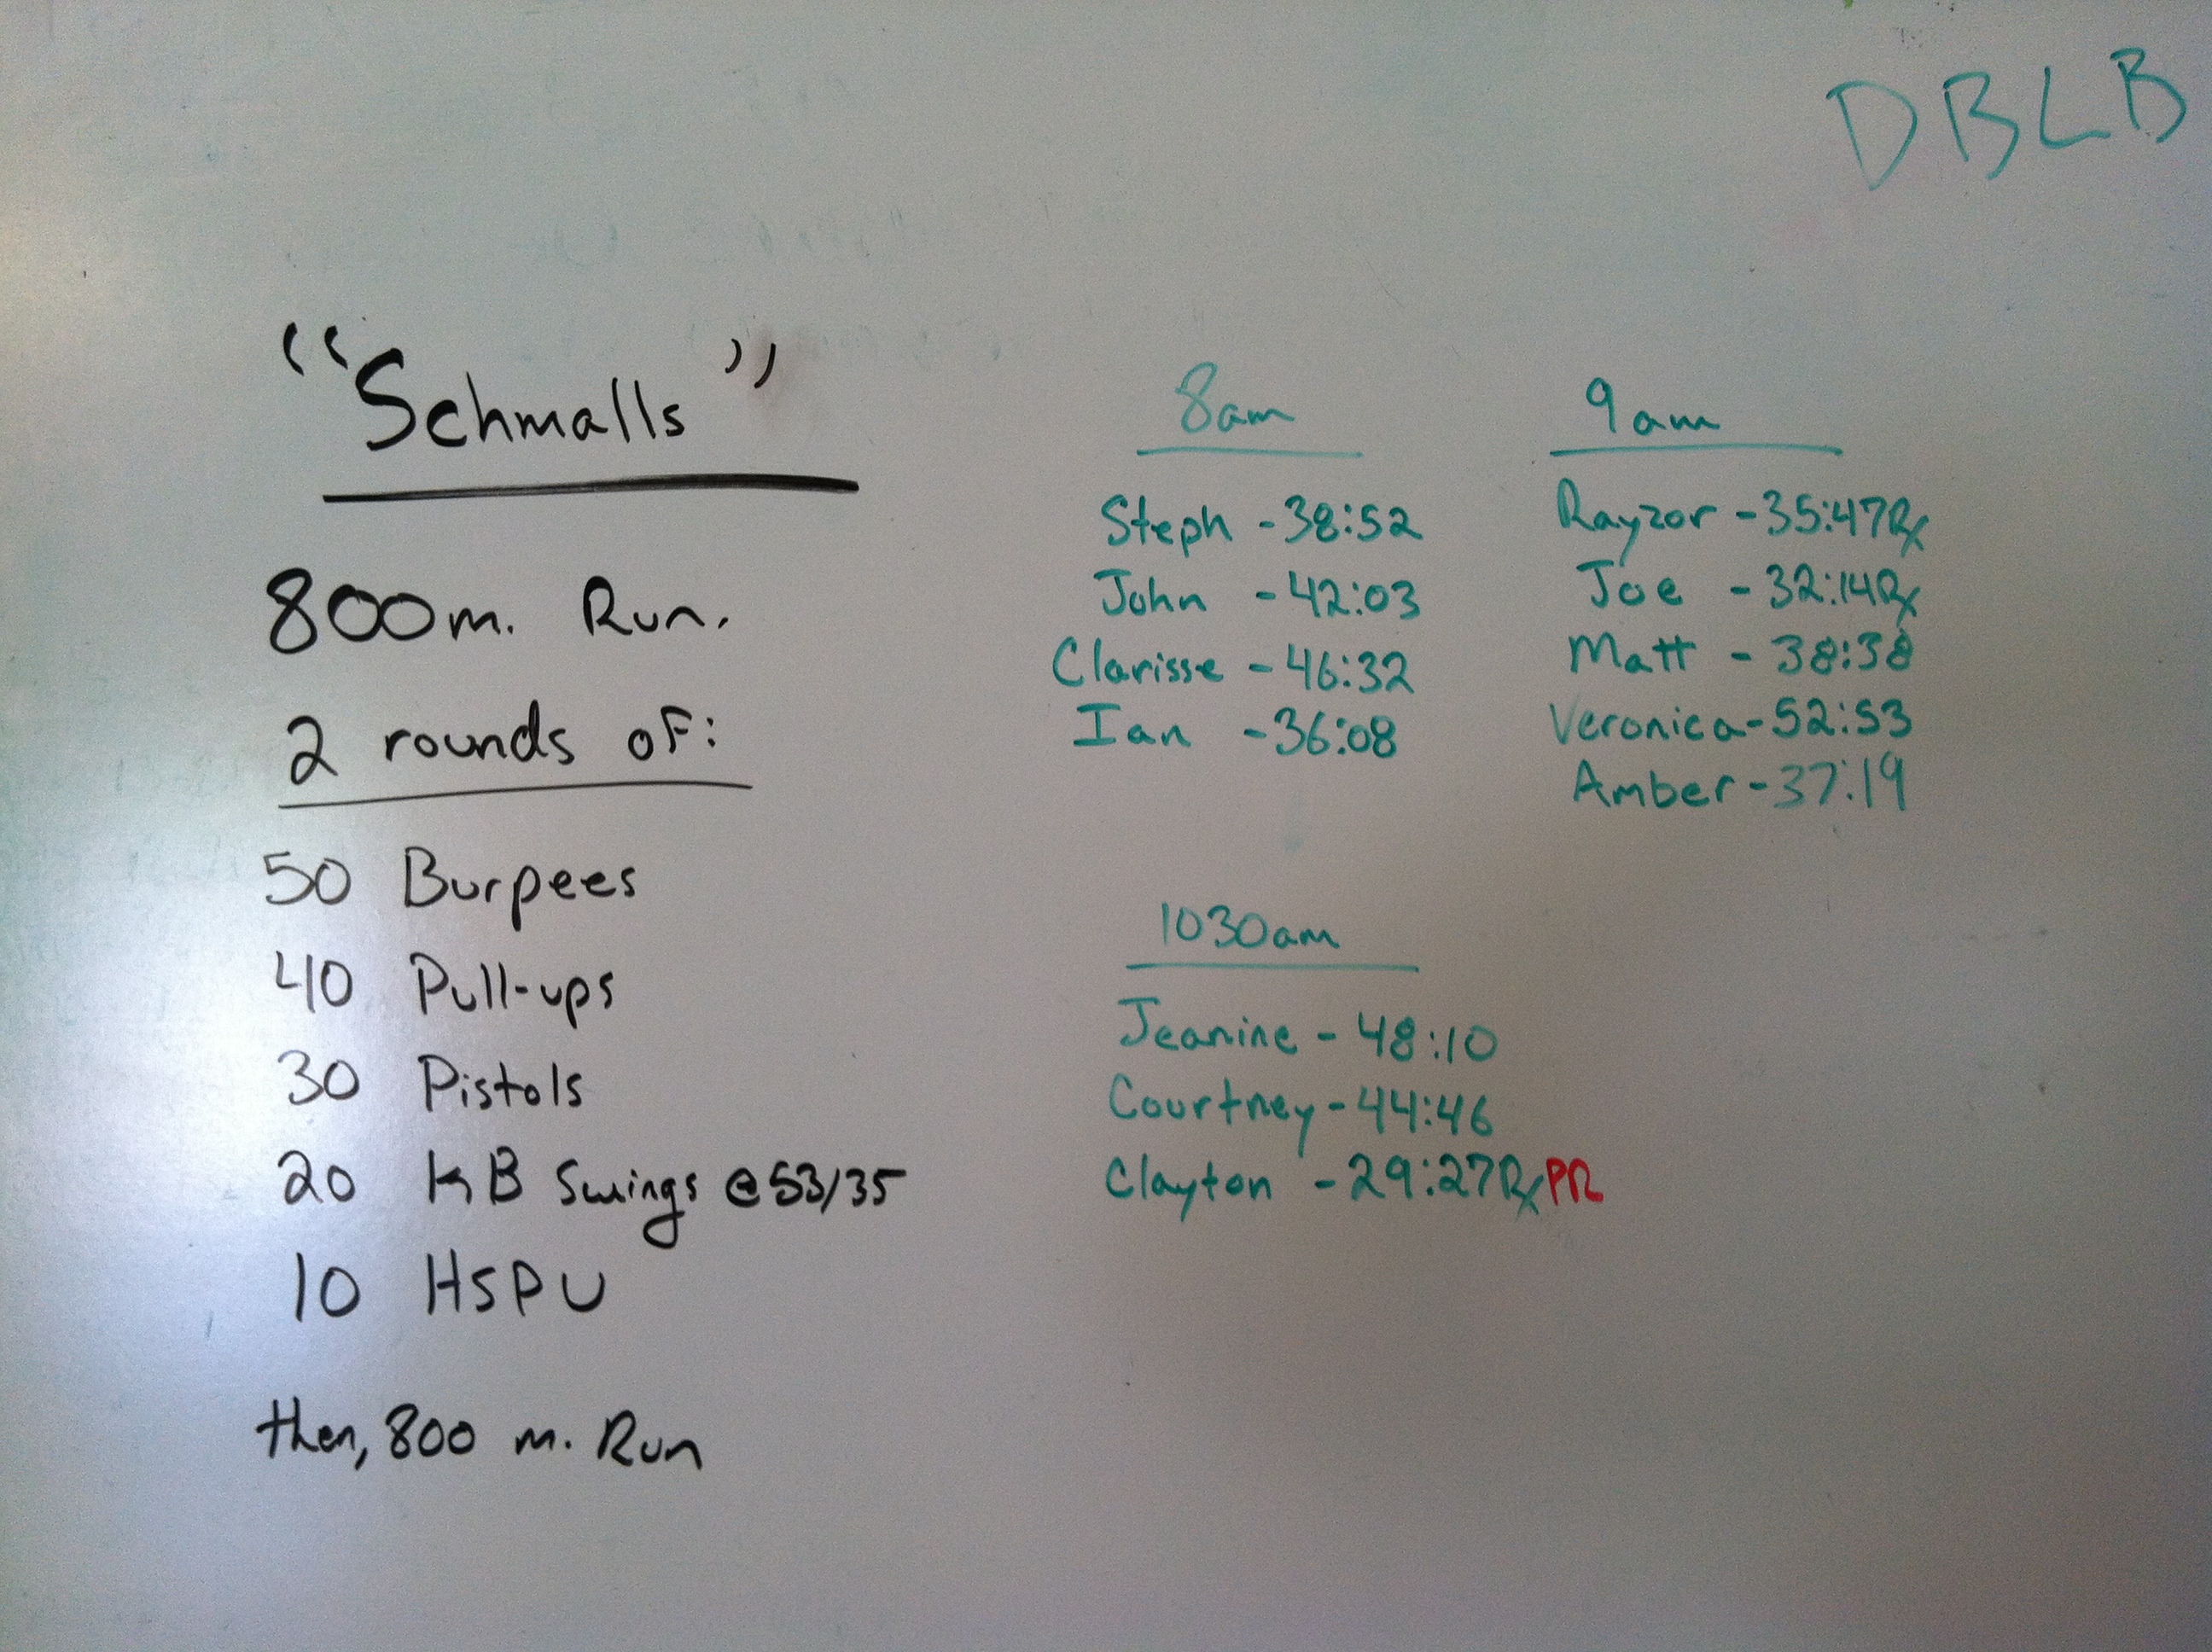 DBLB
"Schmalls"
800m. Run.
2 rounds of:
50 Burpees
40 Pull-ups
30 Pistols
20 KB Swings @53/35
10 HSPU
then, 800 m. Run
8am
Steph - 38:52
John - 42:03
Clarisse - 46:32
Ian - 36:08
9am
Rayzor - 35:47 Rx
Joe - 32:14 Rx
Matt - 38:38
Veronica - 52:53
Amber - 37:19
1030am
Jeanine - 48:10
Courtney - 44:46
Clayton - 29:27 Rx PR